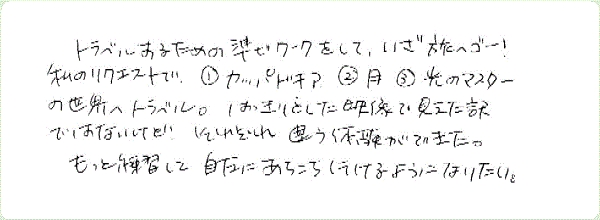 トラベルするための準ビワークをして、いざ旅へゴー!
私のリクエストで、①カッパドキア ②月 ③光のマスター
の世界へトラベル。はっきりとした映像で見えた訳
ではないけど!! それぞれ 違う体験ができた。
もっと練習して 自在にあちこち行けるようになりたい。